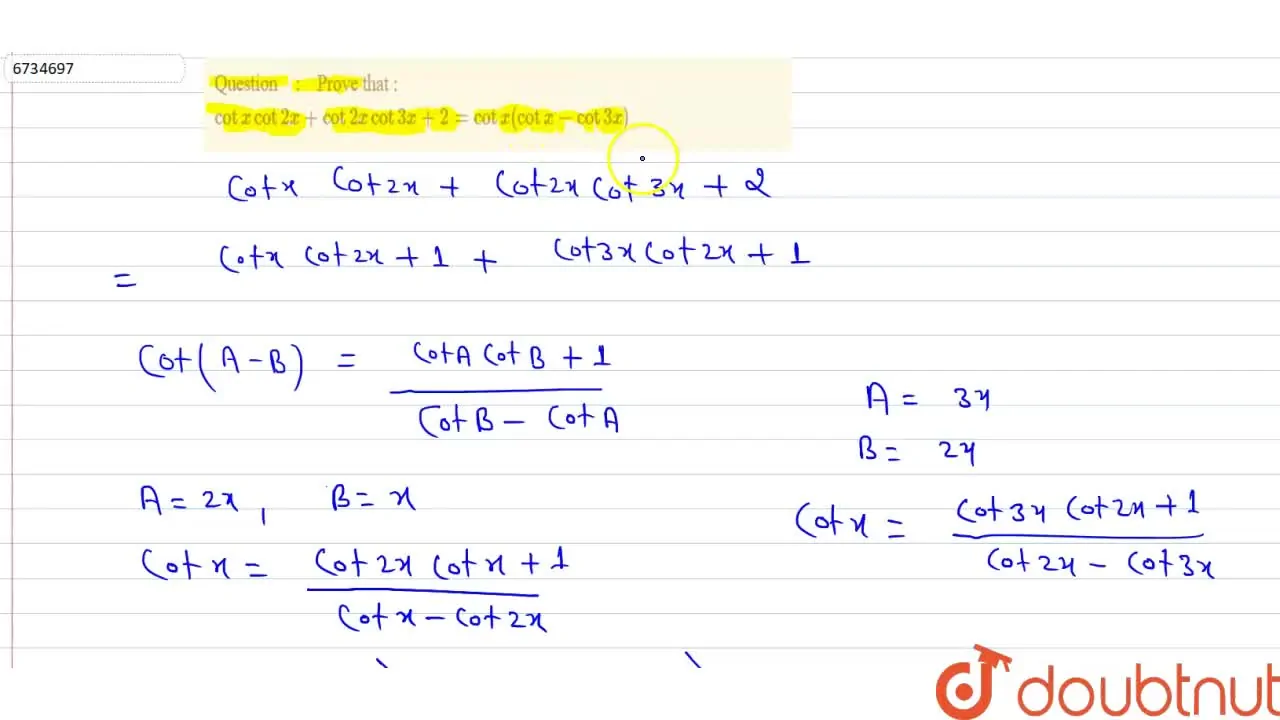 6734697
Question : Prove that :
cot x cot 2x + cot 2x cot 3x + 2 = cot x(cot x − cot 3x)
Cotx Cot2x + Cot2x Cot3x + 2
= Cotx Cot2x + 1 + Cot3x Cot2x + 1
Cot(A-B) = CotA CotB + 1
CotB - CotA
A = 3x
B = 2x
A = 2x, B = x
Cot x = Cot3x Cot2x + 1
Cot2x - Cot3x
Cot x = Cot2x Cotx + 1
Cotx - Cot2x
doubtnut